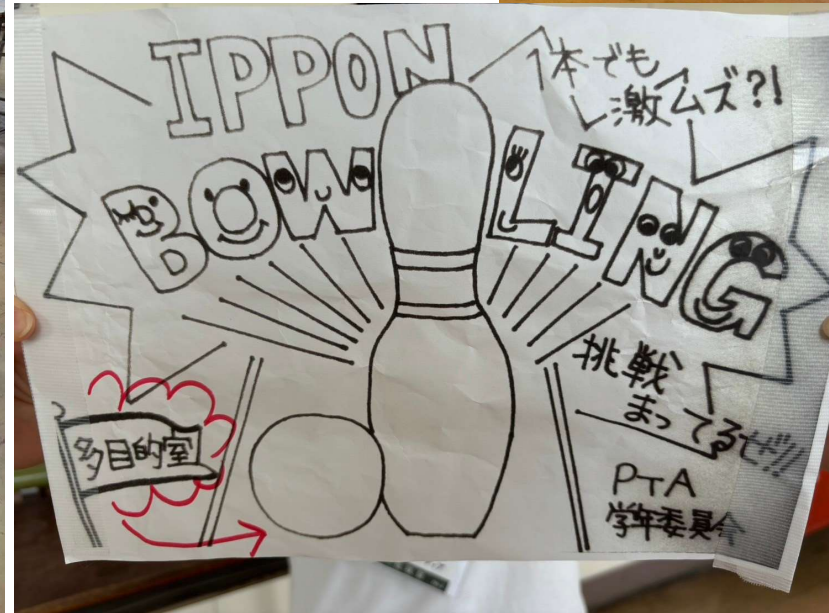 IPPON
1本でも
激ムズ?!
BOWLING
挑戦
まってるぜ!!
多目的室
PTA
学年委員会